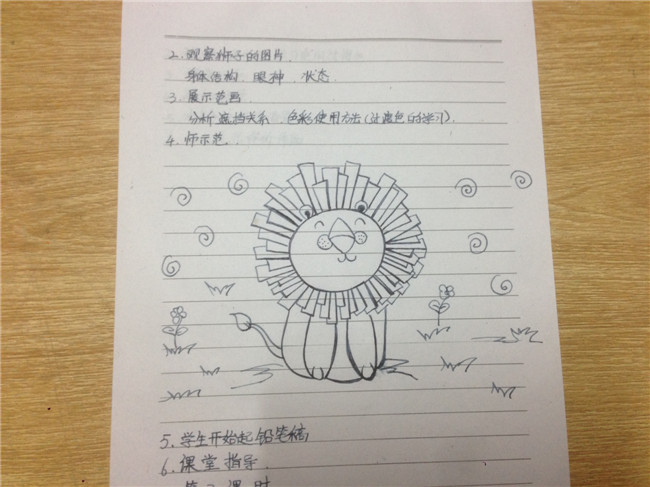 2. 观察狮子的图片.
身体结构 眼神 状态.
3. 展示范画
分析遮挡关系 色彩使用方法(过渡色的学习).
4. 师示范.
5. 学生开始起铅笔稿
6. 课堂指导.
第2课时